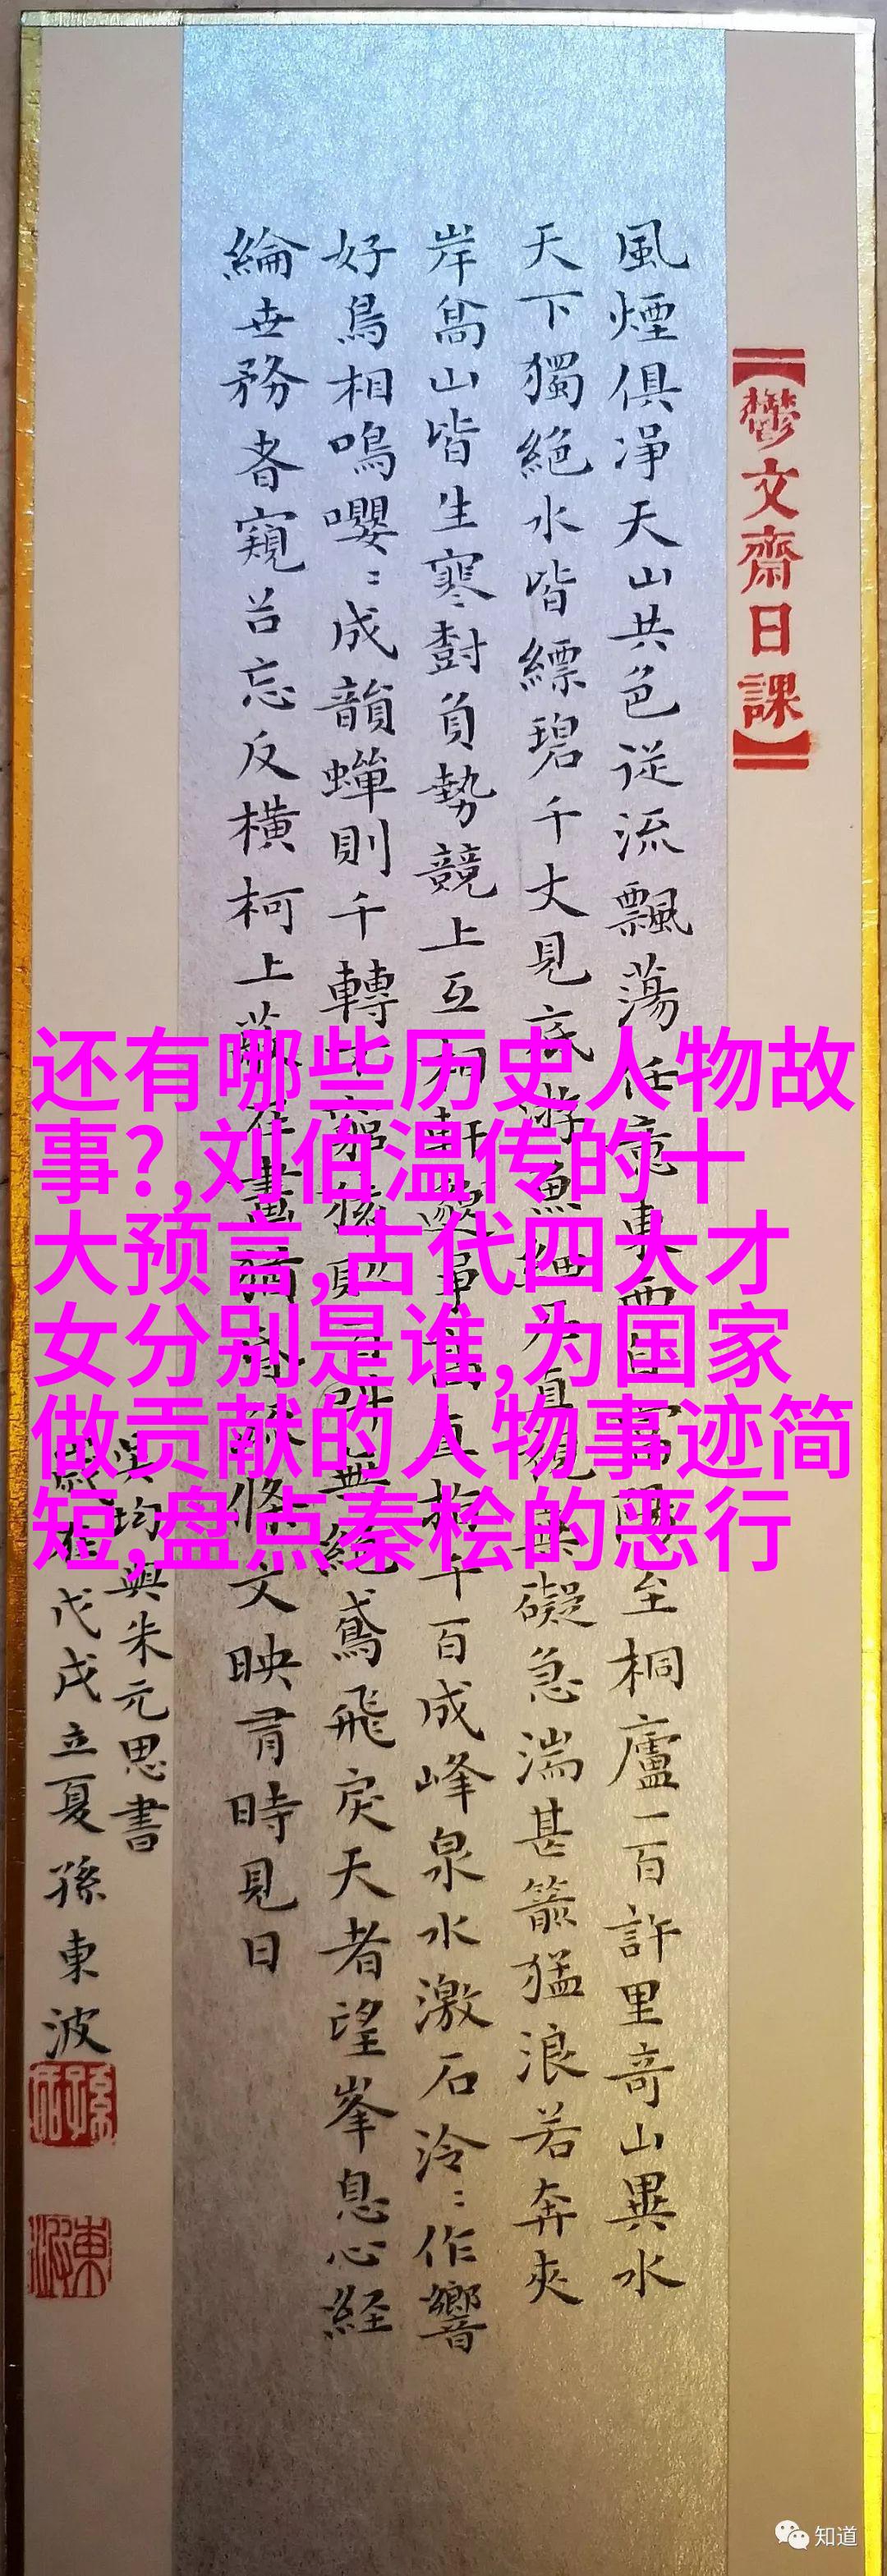 【鬱文齋日課】
風煙俱淨天山共色從流飄蕩任意東西自富陽至桐廬一百許里奇山異水
天下獨絕水皆縹碧千丈見底游魚細石直視無礙急湍甚箭猛浪若奔夾
岸高山皆生寒樹負勢競上互相軒邈爭高直指千百成峰泉水激石泠:作響
好鳥相鳴嚶:成韻蟬則千轉不窮猿則百叫無絕鳶飛戾天者望峯息心経
綸世務者窺谷忘反橫柯上蔽在晝猶昏疎條交映有時見日
吳均與朱元思書
歲在戊戌立夏孫東波
还有哪些历史人物故
事?,刘伯温传的十
大预言,古代四大才
女分别是谁,为国家
做贡献的人物事迹简
短,盘点秦桧的恶行
知道